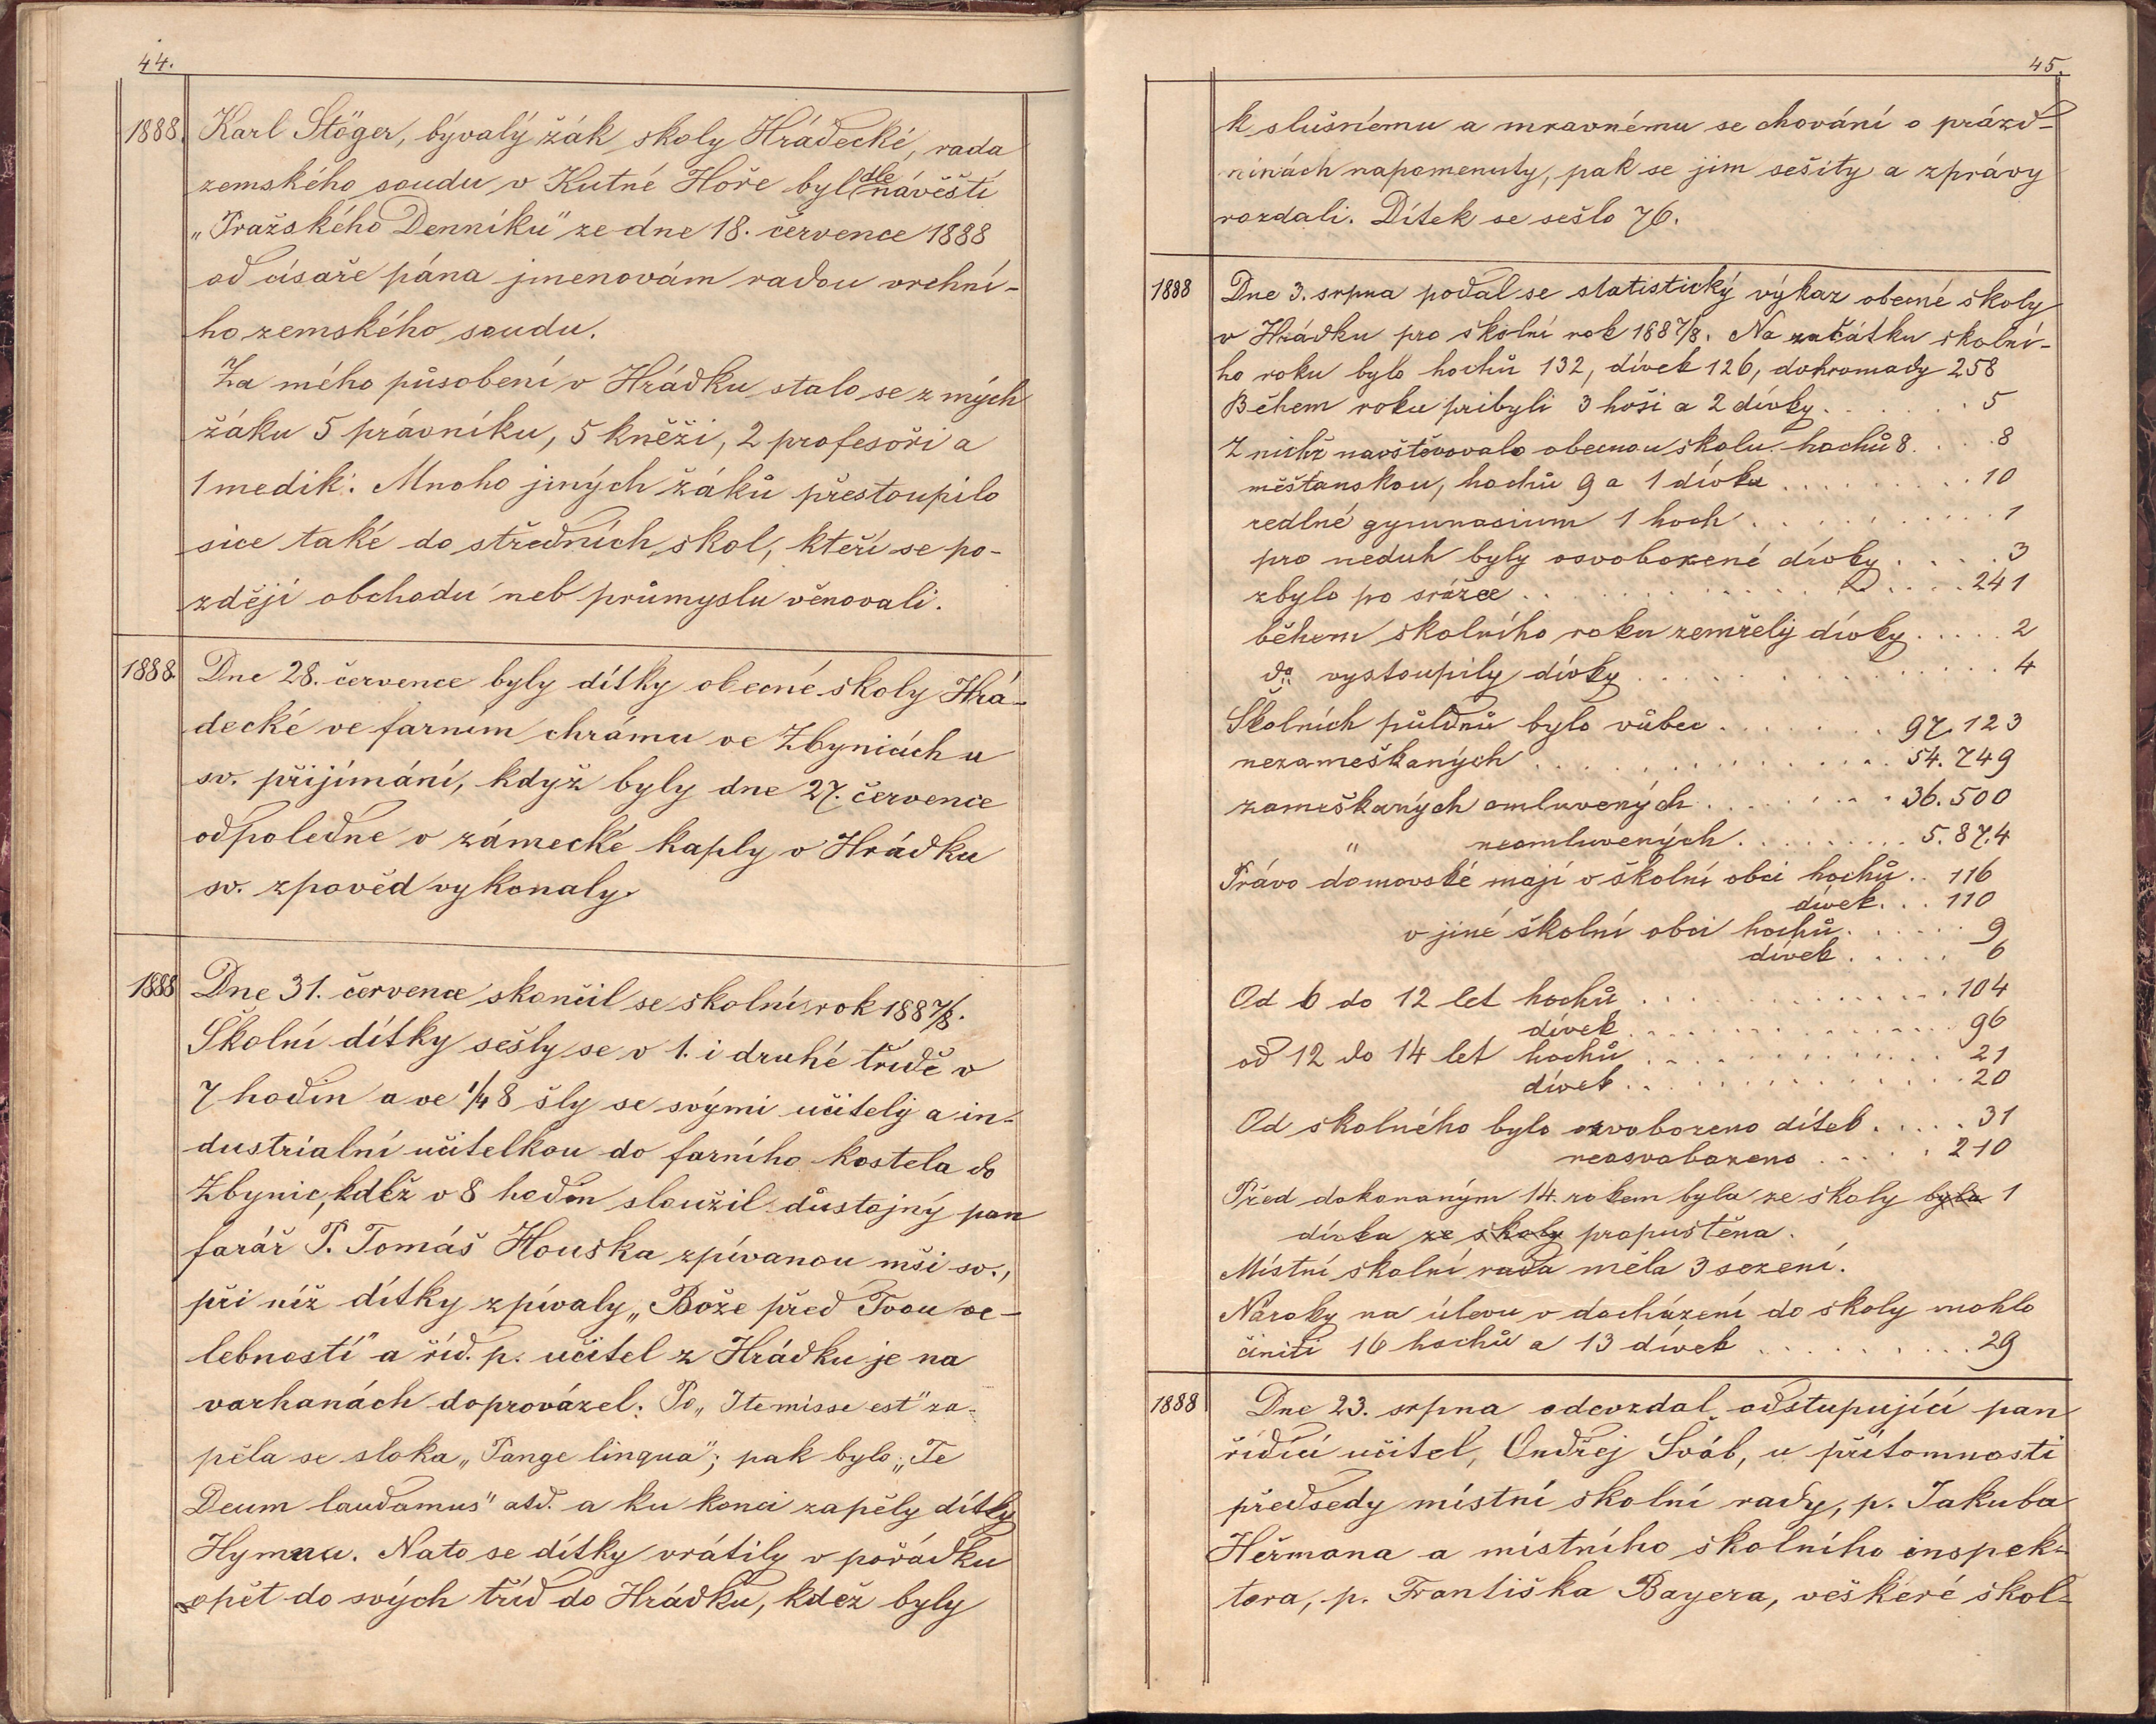 44.
1888. Karl Stöger, bývalý žák školy Hrádecké, rada
zemského soudu v Kutné Hoře byl dle návěští
„Pražského Denníku" ze dne 18. července 1888
od císaře pána jmenovám radou vrchní-
ho zemského soudu.
Za mého působení v Hrádku stalo se z mých
žáku 5 právníku, 5 kněži, 2 profesoři a
1 medik. Mnoho jiných žáků přestoupilo
sice také do středních škol, kteří se po-
zději obchodu neb průmyslu věnovali.
1888. Dne 28. července byly dítky obecné školy Hrá-
decké ve farním chrámu ve Zbynicích u
sv. přijímání, když byly dne 27. července
odpoledne v zámecké kaply v Hrádku
sv. zpověd vykonaly.
1888 Dne 31. července skončil se školní rok 1887/8.
Školní dítky sešly se v 1. i druhé třídě v
7 hodin a ve 1/4 8 šly se svými učitely a in-
dustrialní učitelkou do farního kostela do
Zbynic, kdež v 8 hodin sloužil důstojný pan
farář P. Tomáš Houska zpívanou mši sv.,
při níž dítky zpívaly „Bože před Tvou ve-
lebností" a říd. p. učitel z Hrádku je na
varhanách doprovázel. Po „Ite misse est" za-
pěla se sloka „Pange lingua"; pak bylo „Te
Deum laudamus" atd. a ku konci zapěly dítky
Hymnu. Nato se dítky vrátily v pořádku
opět do svých tříd do Hrádku, kdež byly
45.
k slušnému a mravnému se chování o prázd-
ninách napomenuty, pak se jim sešity a zprávy
rozdali. Dítek se sešlo 76.
1888 Dne 3. srpna podal se statistický výkaz obecné školy
v Hrádku pro školní rok 1887/8. Na začátku školní-
ho roku bylo hochů 132, dívek 126, dohromady 258
Během roku pribyli 3 hoši a 2 dívky . . . . . . 5
Z nichž navštěvovalo obecnou školu hochů 8. . . . 8
měšťanskou, hochů 9 a 1 dívka . . . . . . . . . 10
reálné gymnasium 1 hoch . . . . . . . . . . . . 1
pro neduh byly osvobozené dívky . . . . . 3
zbylo po srážce . . . . . . . . . . . . . . . . 241
během školního roku zemřely dívky . . . . . 2
do vystoupily dívky . . . . . . . . . . . . . . 4
Školních půldnů bylo vůbec . . . . . . . 97.123
nezameškaných . . . . . . . . . . . . . . . 54.749
zameškaných omluvených . . . . . . . . 36.500
„ neomluvených . . . . . . . . . 5.874
Právo domovské mají v školní obci hochů . . 116
dívek . . . 110
v jiné školní obci hochů . . . . . . 9
dívek . . . . . 6
Od 6 do 12 let hochů . . . . . . . . . . . . . . 104
dívek . . . . . . . . . . . . . . 96
od 12 do 14 let hochů . . . . . . . . . . . . . 21
dívek . . . . . . . . . . . . . . 20
Od školného bylo osvobozeno dítek . . . . . 31
neosvobozeno . . . . . 210
Před dokonaným 14. rokem byla ze školy byla 1
dívka ze školy propuštěna.
Místní školní rada měla 3 sezení.
Nároky na úlevu v docházení do školy mohlo
činiti 16 hochů a 13 dívek . . . . . . . . . . 29
1888 Dne 23. srpna odevzdal odstupující pan
řídící učitel, Ondřej Šváb, u přítomnosti
předsedy místní školní rady, p. Jakuba
Heřmana a místního školního inspek-
tora, p. Františka Bayera, veškeré škol-